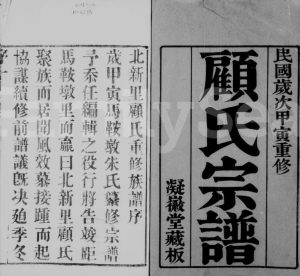 民國歲次甲寅重修
顧氏宗譜
凝撮堂藏板
北新里顧氏重修族譜序
歲甲寅馬鞍墩朱氏纂修宗譜
予忝任編輯之役行將告竣距
馬鞍墩里而嬴曰北新里顧氏
聚族而居聞風效慕接踵而起
協謀續修前譜議既决迨季冬